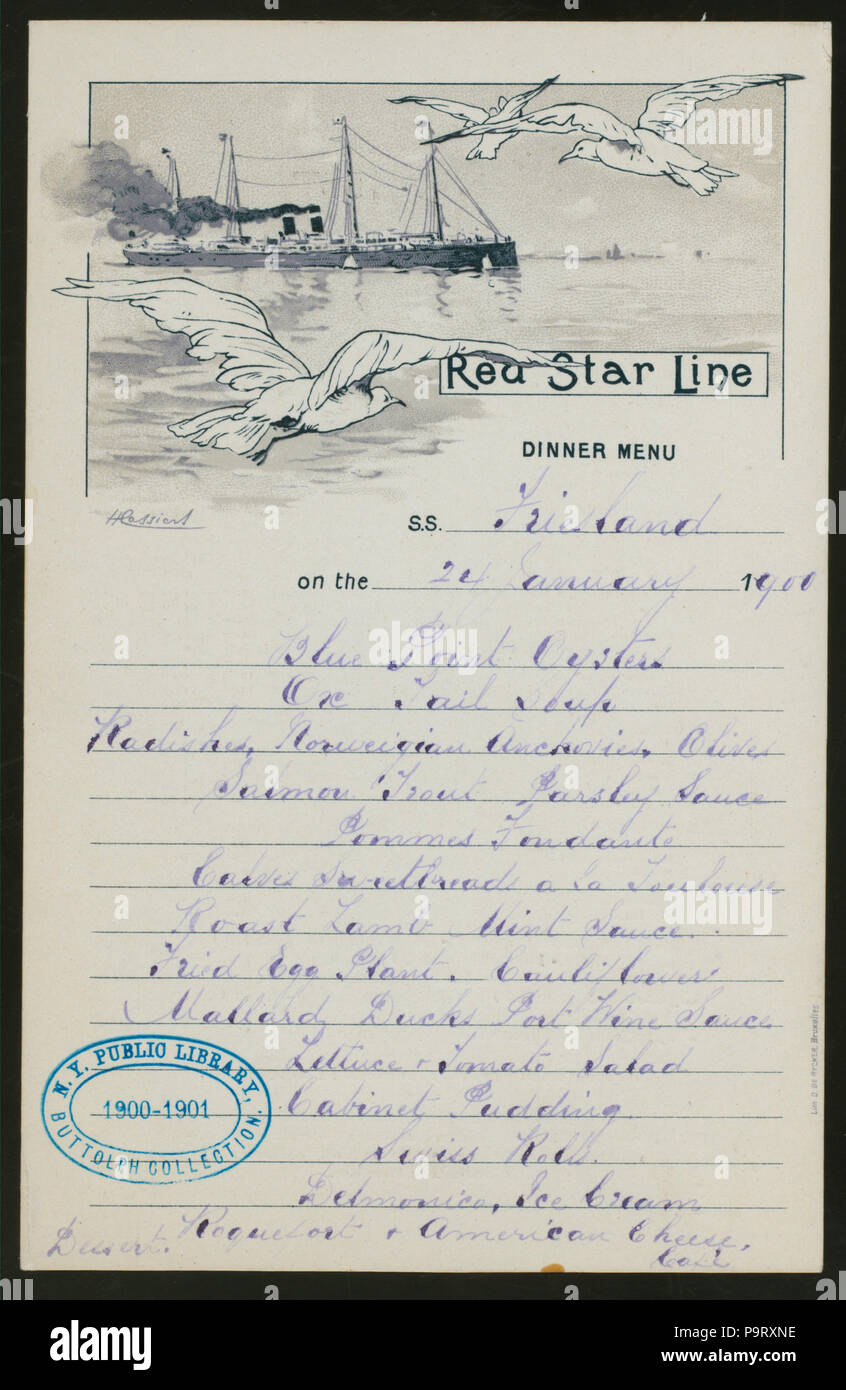 Red Star Line
DINNER MENU
HCassiers
S.S. Friesland
on the 24 January 1900
Blue Point Oysters
Ox Tail Soup
Radishes, Norweigian Anchovies, Olives
Salmon Trout Parsley Sauce
Pommes Fondante
Calves Sweetbreads a la Toulouse
Roast Lamb Mint Sauce.
Fried Egg Plant. Cauliflower
Mallard Ducks Port Wine Sauce
Lettuce & Tomato Salad
Cabinet Pudding.
Swiss Rolls.
Delmonico, Ice Cream
Dessert. Roquefort & American Cheese,
N.Y. PUBLIC LIBRARY,
1900-1901
BUTTOLPH COLLECTION.
LITH. O. DE RYCKER, Bruxelles
alamy
alamy stock photo
P9RXNE
www.alamy.com